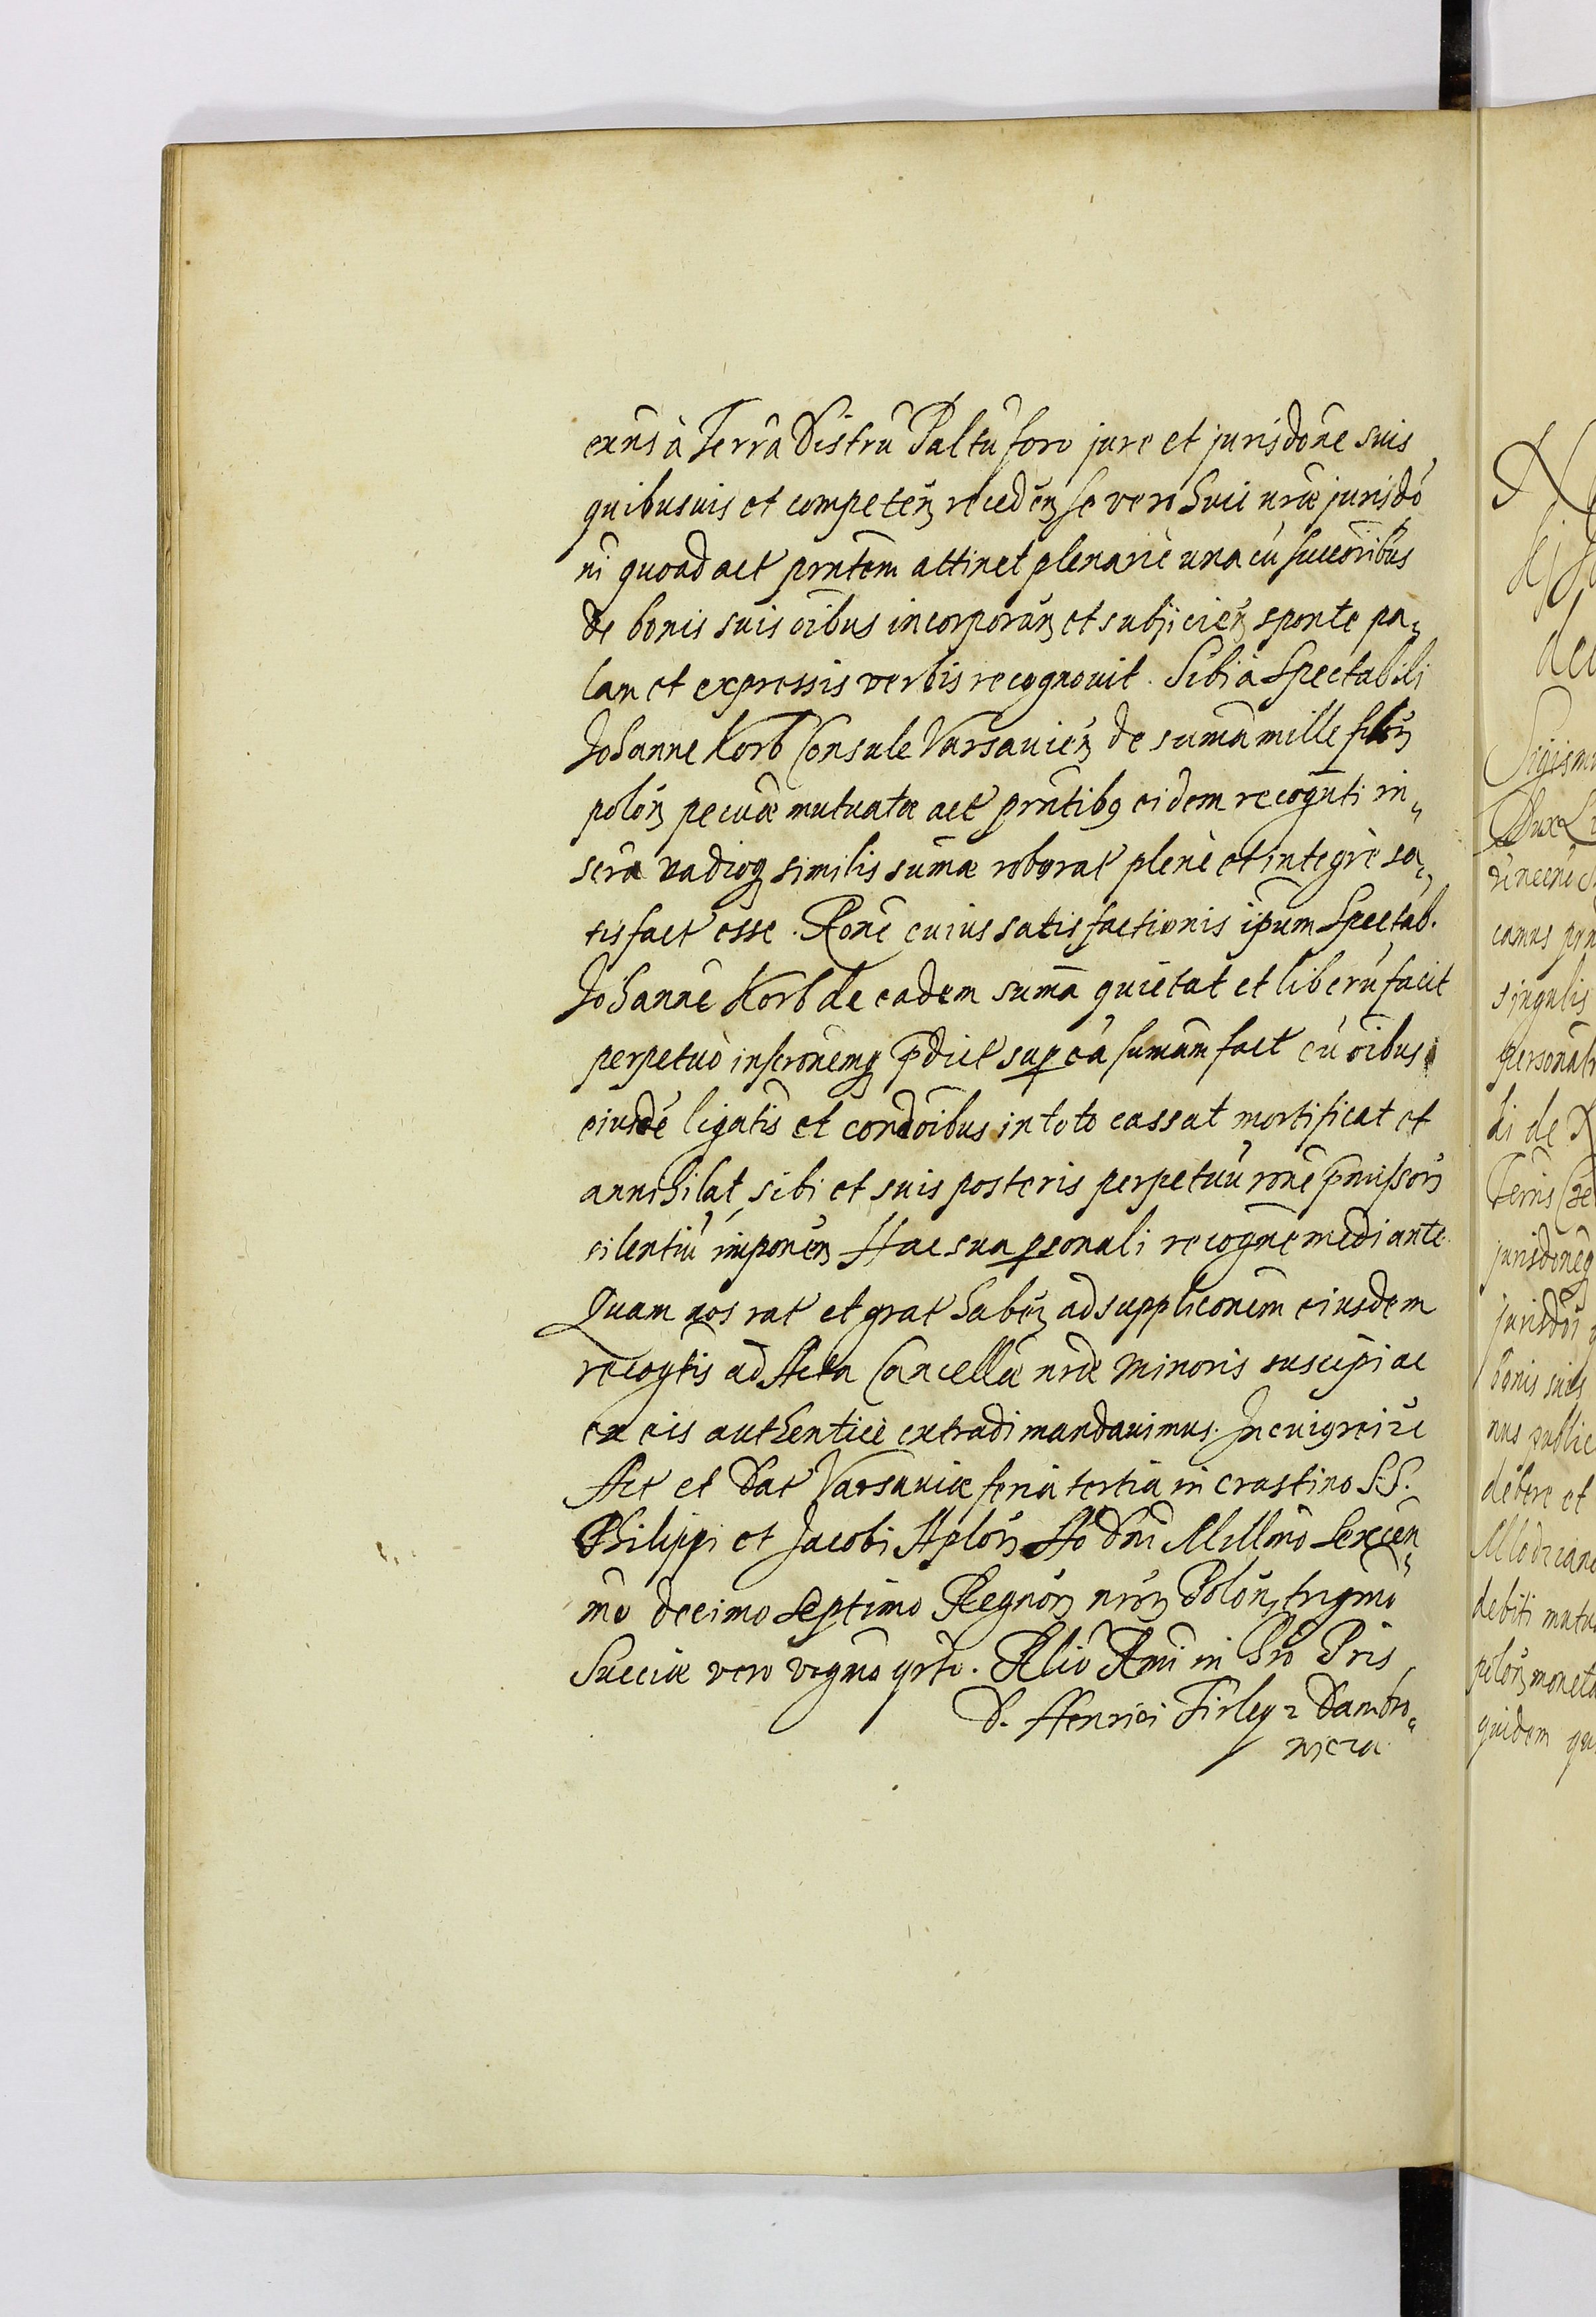 exns à Terra Distru Paltu foro jure et jurisdone suis
quibusuis et competen receden se vero huic nrae jurisdo
ni quoad act prntem attinet plenariè una cu succoribus
de bonis suis oibus incorporan et subijcien sponte pa„
lam et expressis verbis recognouit. Sibi à Spectabili
Johanne Korb Consule Varsauien de suma mille flor
polon pecuae mutuatae act prntibq eidem recognti in„
sera vadioq similis sumae roborat plenè et integrè sa„
tisfact esse. Rone cuius satisfactionis ipum Spectab.
Johanne Korb de eadem suma quietat et liberu facit
perpetuò inscronemq pdict sup ea sumam fact cu oibus
eiusde ligatis et condoibus in toto cassat mortificat et
annihilat, sibi et suis posteris perpetuu rone pmissor
silentiu imponen Hac sua psonali recogne mediante.
Quam nos rat et grat haben ad suppliconem eiusdem
recogtis ad Acta Cancellae nrae Minoris suscipi ac
ex eis authenticè extradi mandauimus. In cuig rei zc
Act et Dat Varsauiae feria tertia in crastino S.S.
Philippi et Jacobi Aplor Ao Dni Millmo Sexcen„
mo decimo septimo Regnor nror Polon, trigmo
Sueciae vero vegmo qrto. Relio Rmi in Chro Pris
D. Henrici Firley z Dambro„
wicza

Sigismu
Dux Li
camus prn
singulis
personalr
di de
Terris Cze
jurisdoneq
jurisdoi
bonis suis
nus public
debere et
Mlodziano
debiti mutu
polon moneta
quidem qu